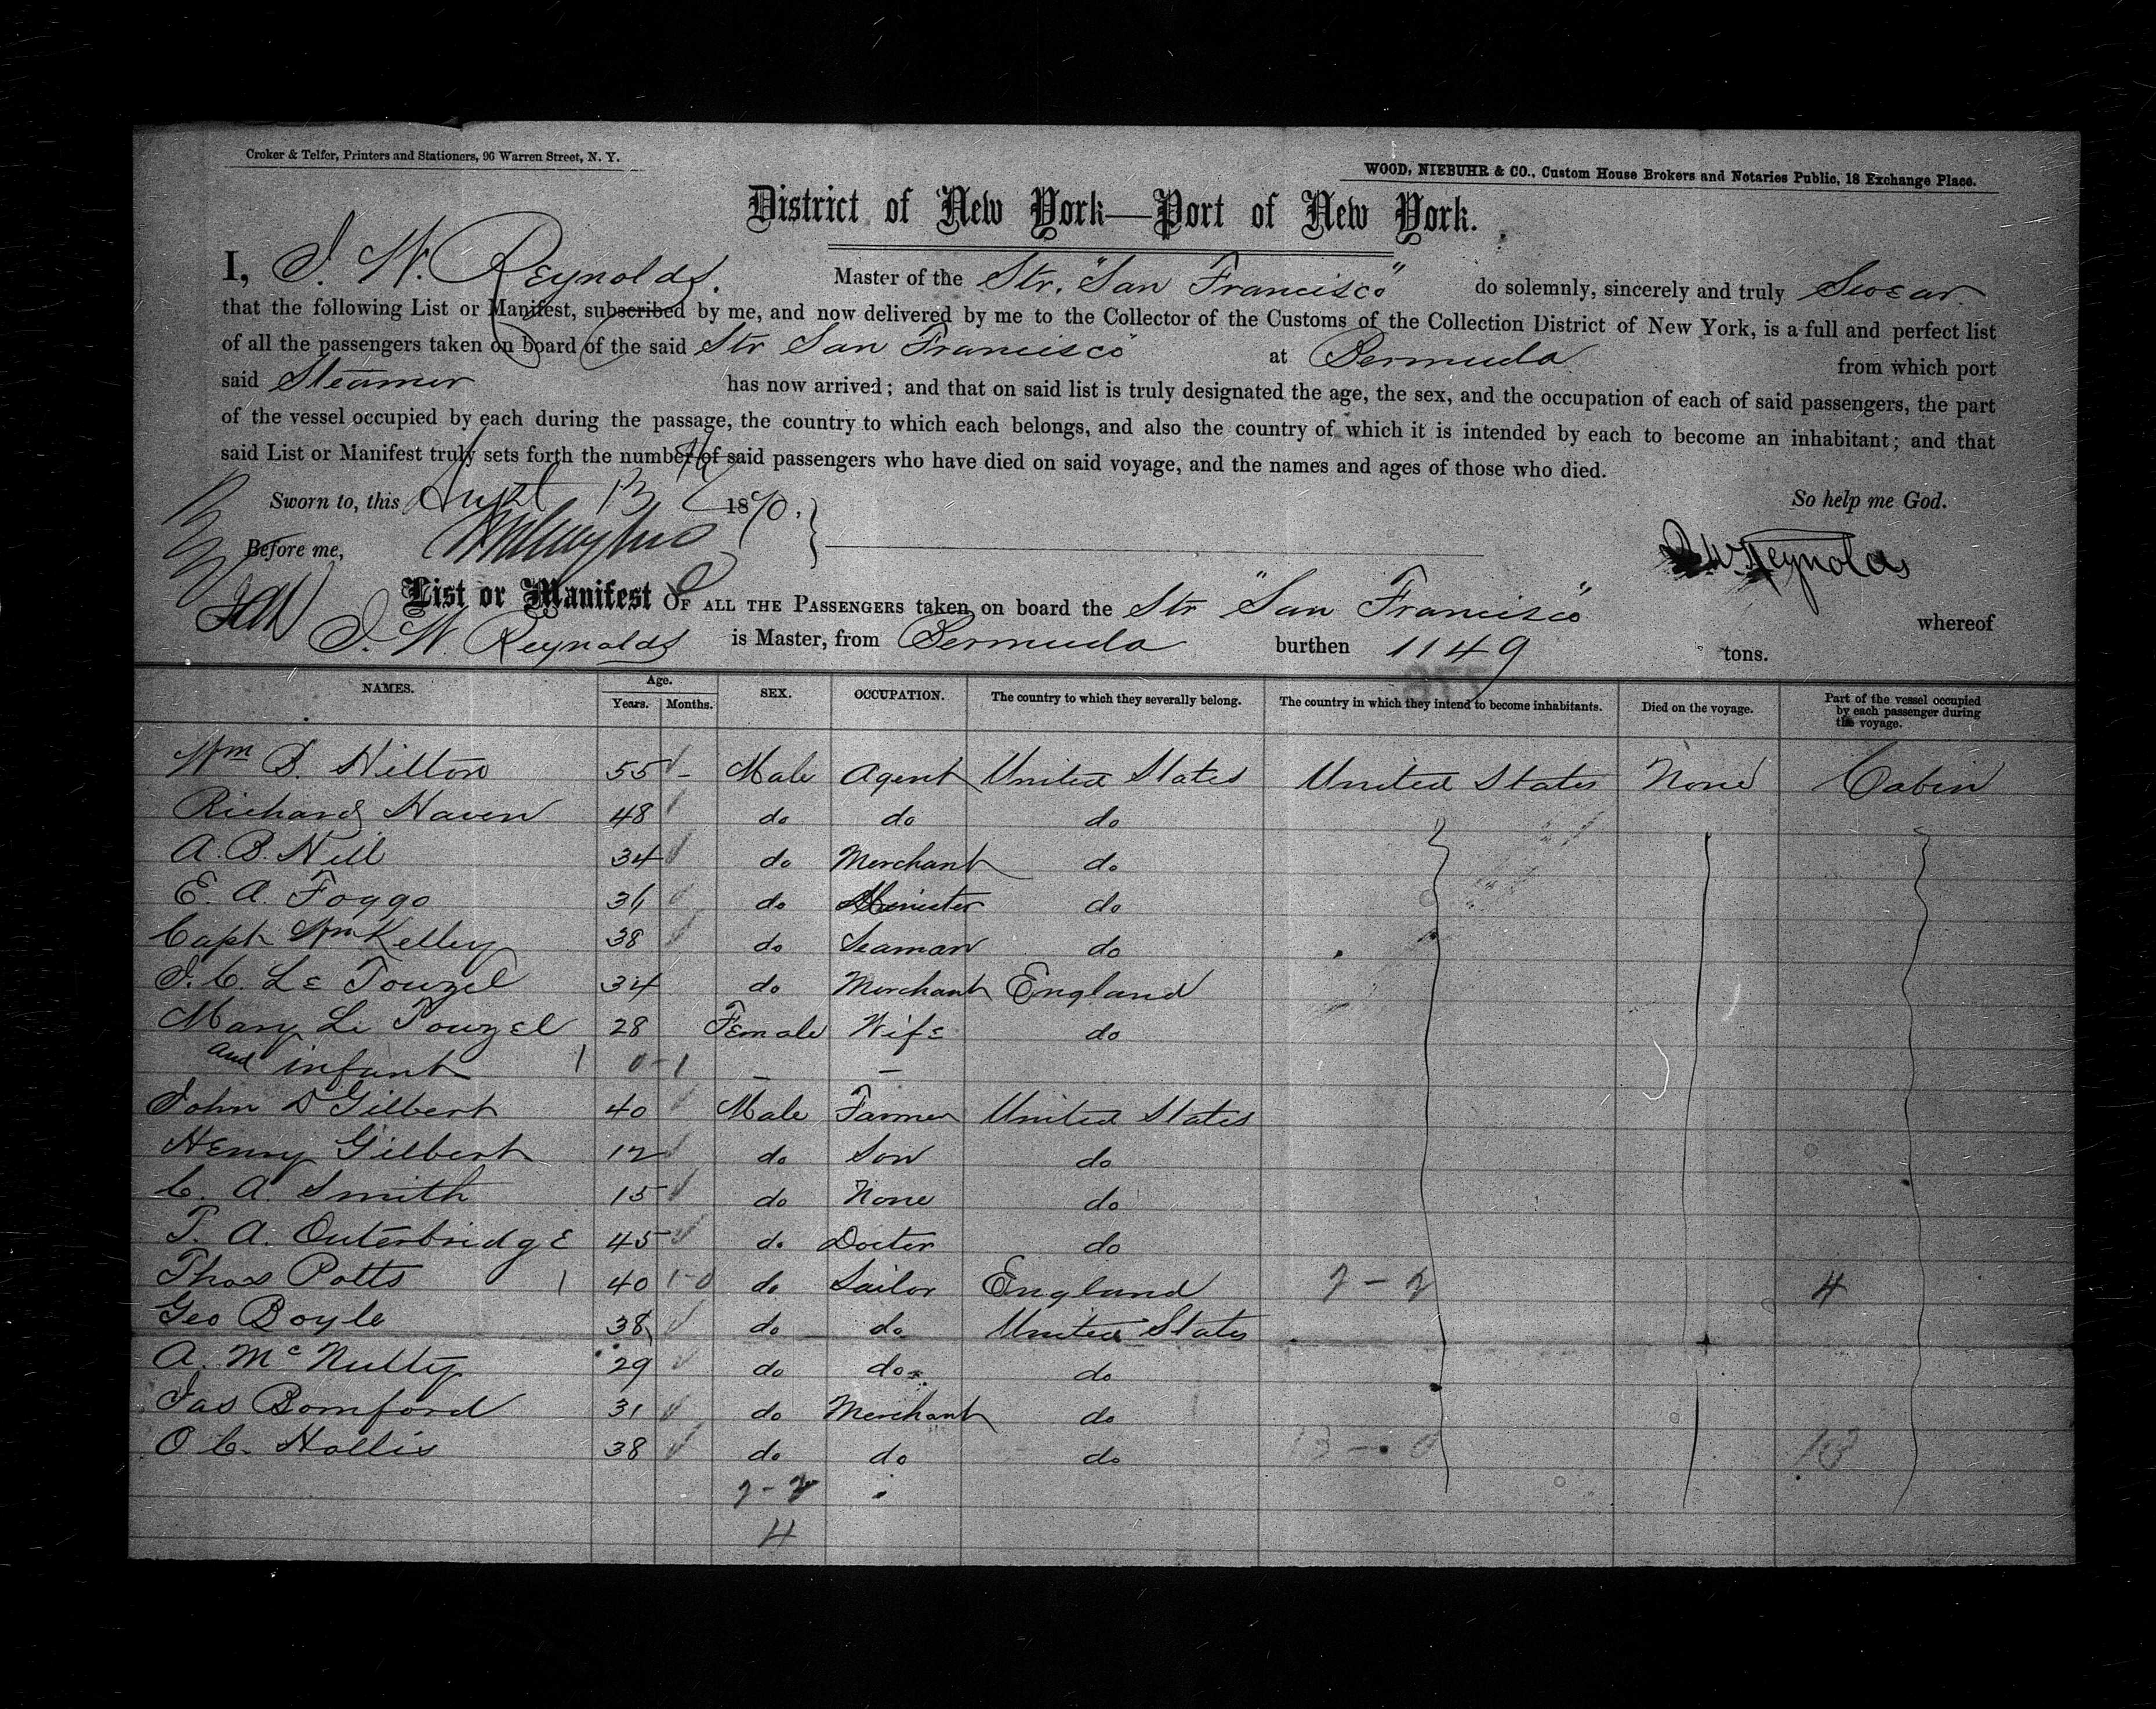 Croker & Telfer, Printers and Stationers, 96 Warren Street, N. Y.
WOOD, NIEBUHR & CO., Custom House Brokers and Notaries Public, 18 Exchange Place.
District of New York—Port of New York.
I, J. W. Reynolds. Master of the Str. "San Francisco" do solemnly, sincerely and truly Swear
that the following List or Manifest, subscribed by me, and now delivered by me to the Collector of the Customs of the Collection District of New York, is a full and perfect list
of all the passengers taken on board of the said Str San Francisco at Bermuda from which port
said Steamer has now arrived; and that on said list is truly designated the age, the sex, and the occupation of each of said passengers, the part
of the vessel occupied by each during the passage, the country to which each belongs, and also the country of which it is intended by each to become an inhabitant; and that
said List or Manifest truly sets forth the number of said passengers who have died on said voyage, and the names and ages of those who died.
Sworn to, this Sept 13 1870. So help me God.
Before me, J. W. Reynolds
List or Manifest OF ALL THE PASSENGERS taken on board the Str "San Francisco" whereof
J. W. Reynolds is Master, from Bermuda burthen 1149 tons.
NAMES. Age. Years. Months. SEX. OCCUPATION. The country to which they severally belong. The country in which they intend to become inhabitants. Died on the voyage. Part of the vessel occupied by each passenger during the voyage.
Wm B. Hilton 55 - Male Agent United States United States None Cabin
Richard Haven 48 do do do
A. B. Hill 34 do Merchant do
E. A. Foggo 36 do Minister do
Capt Wm Kelley 38 do Seaman do
J. C. Le Touzel 34 do Merchant England
Mary Le Touzel 28 Female Wife do
and infant 1 0-1 — —
John D Gilbert 40 Male Farmer United States
Henry Gilbert 12 do Son do
C. A. Smith 15 do None do
T. A. Outerbridge 45 do Doctor do
Thos Potts 1 40 1-0 do Sailor England 2-2 4
Geo Boyle 38 do do United States
A. McNulty 29 do do do
Jas Bomford 31 do Merchant do
O C. Hollis 38 do do do 13-0 13
2-2
4